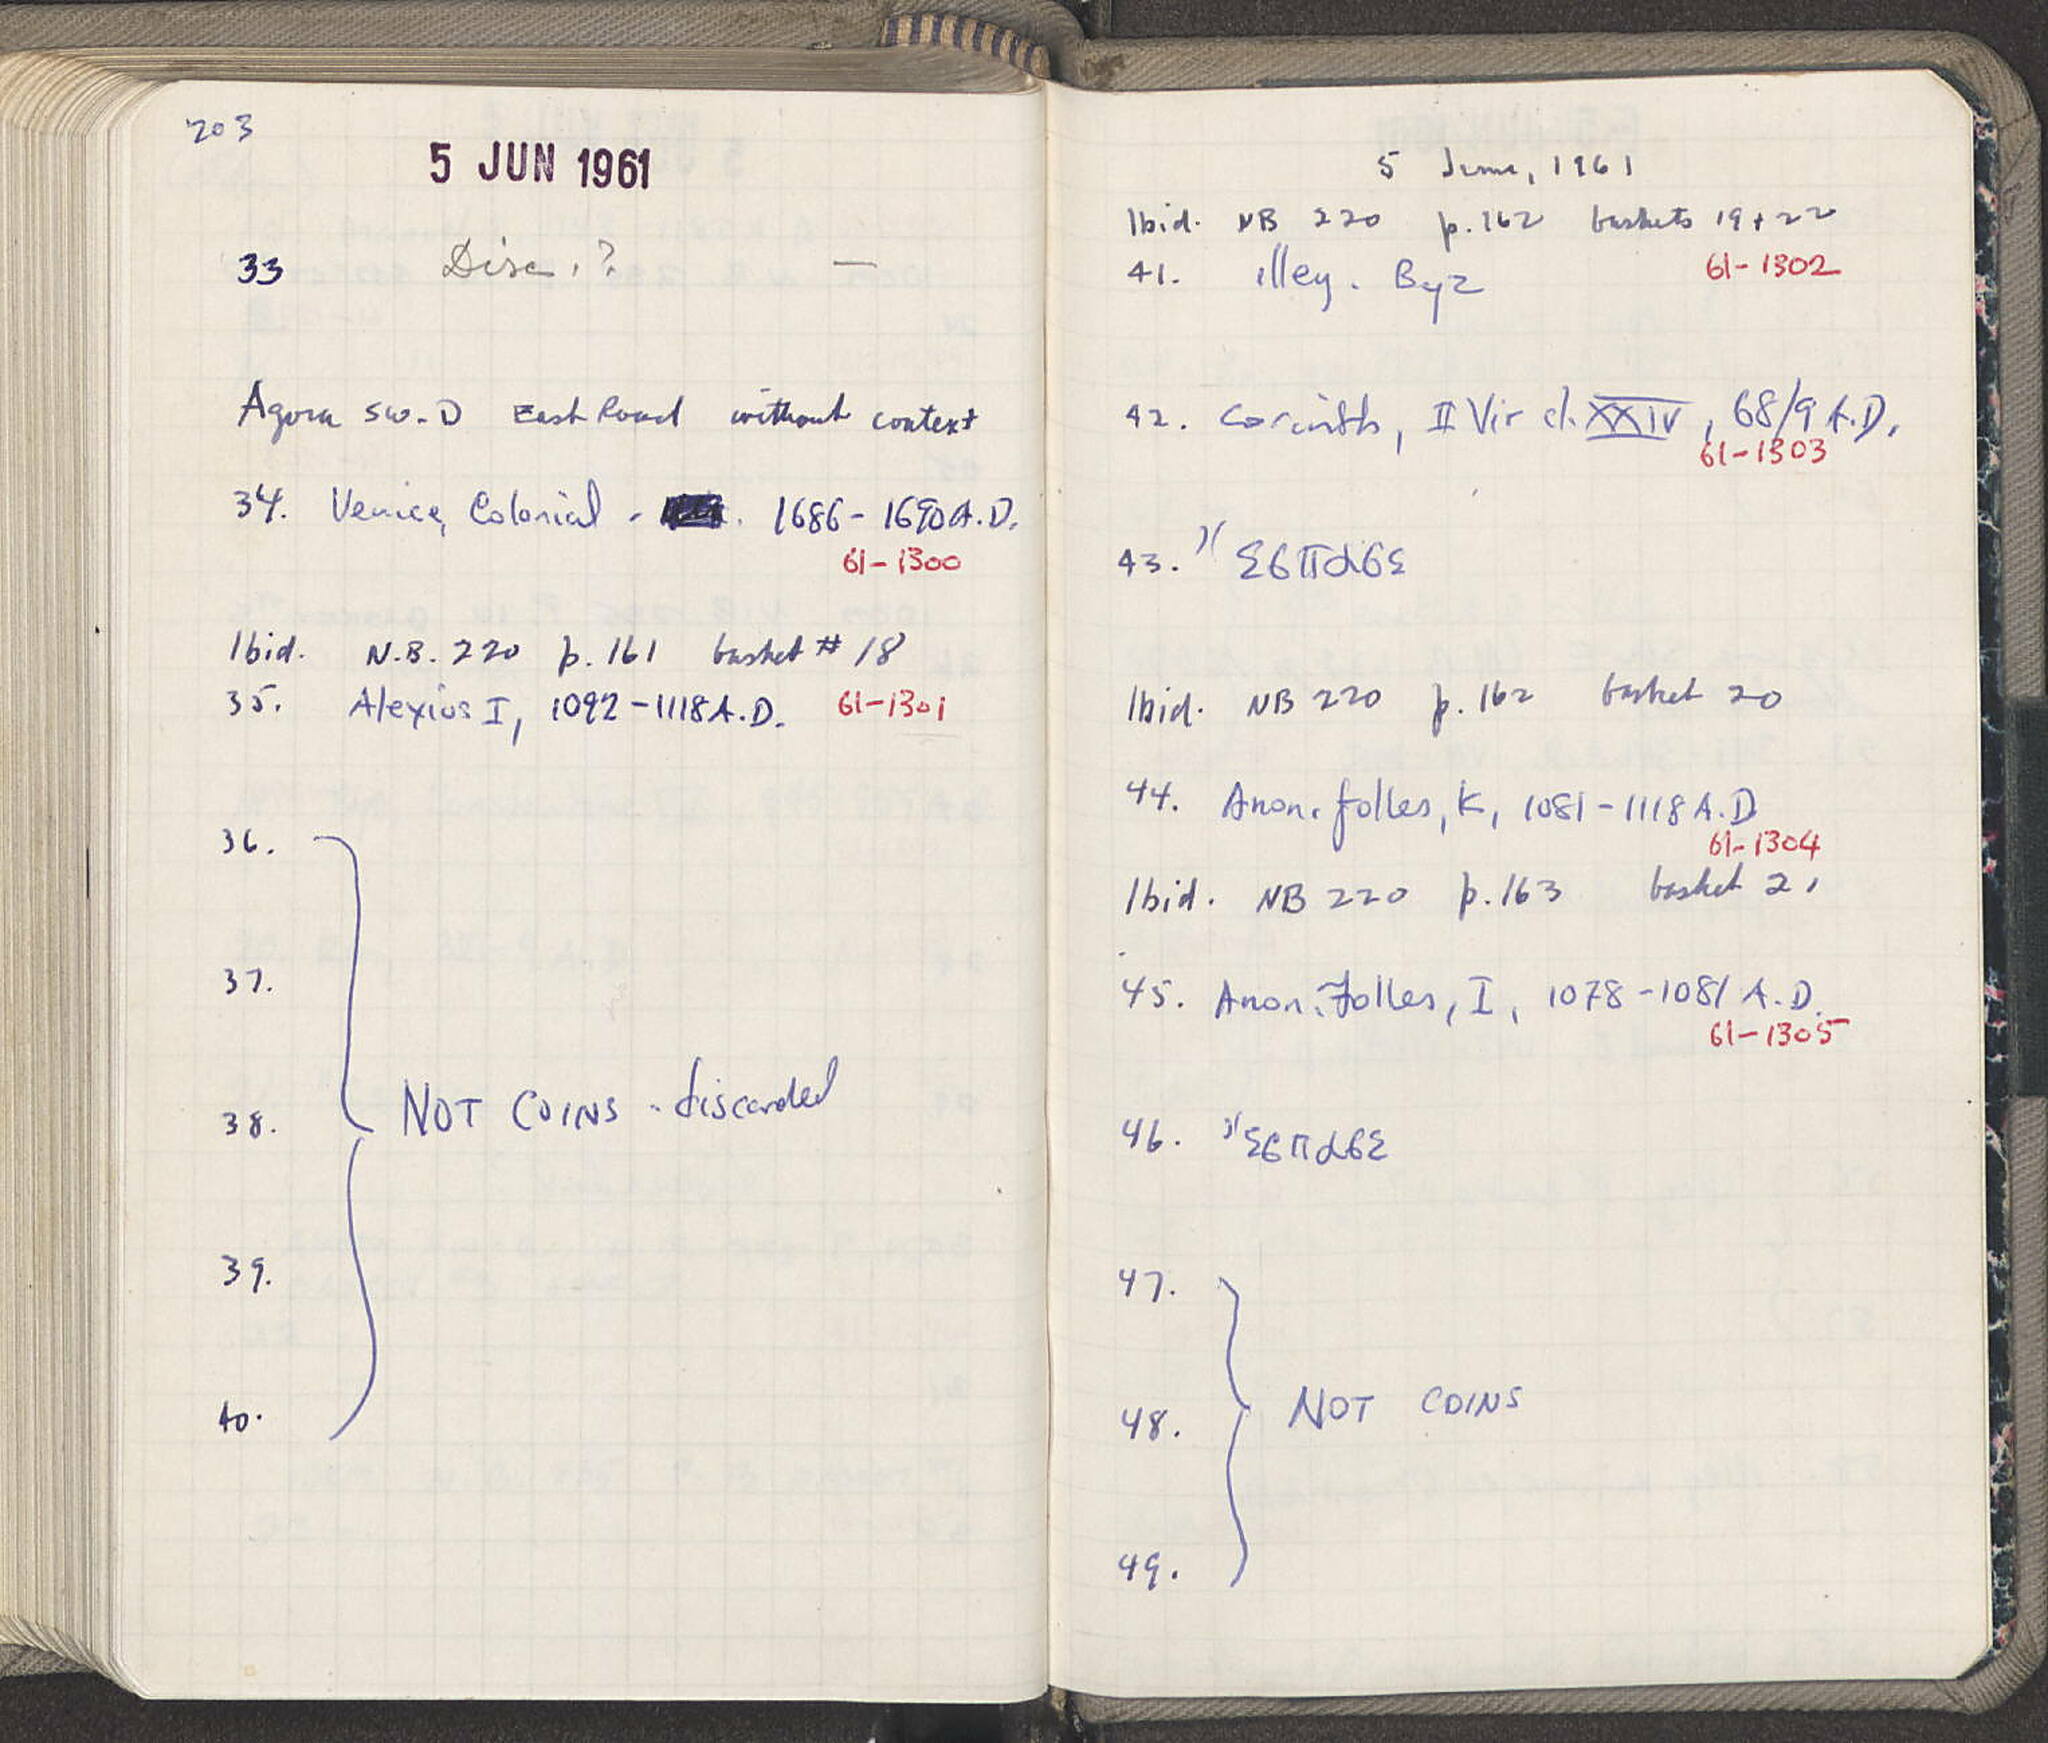 203
5 JUN 1961
33 Disc.? —
Agora SW. D East Road without context
34. Venice, Colonial - 1686-1690 A.D.
61-1300
Ibid. N.B. 220 p. 161 basket # 18
35. Alexius I, 1092-1118 A.D. 61-1301
36.
37.
38. NOT COINS - discarded
39.
40.
5 June, 1961
Ibid. NB 220 p. 162 baskets 19+22
41. illeg. Byz 61-1302
42. Corinth, II Vir cl. XXIV, 68/9 A.D.
61-1303
43.
Ibid. NB 220 p. 162 basket 20
44. Anon. folles, K, 1081-1118 A.D
61-1304
Ibid. NB 220 p. 163 basket 21
45. Anon. Folles, I, 1078-1081 A.D.
61-1305
46.
47.
48. NOT COINS
49.